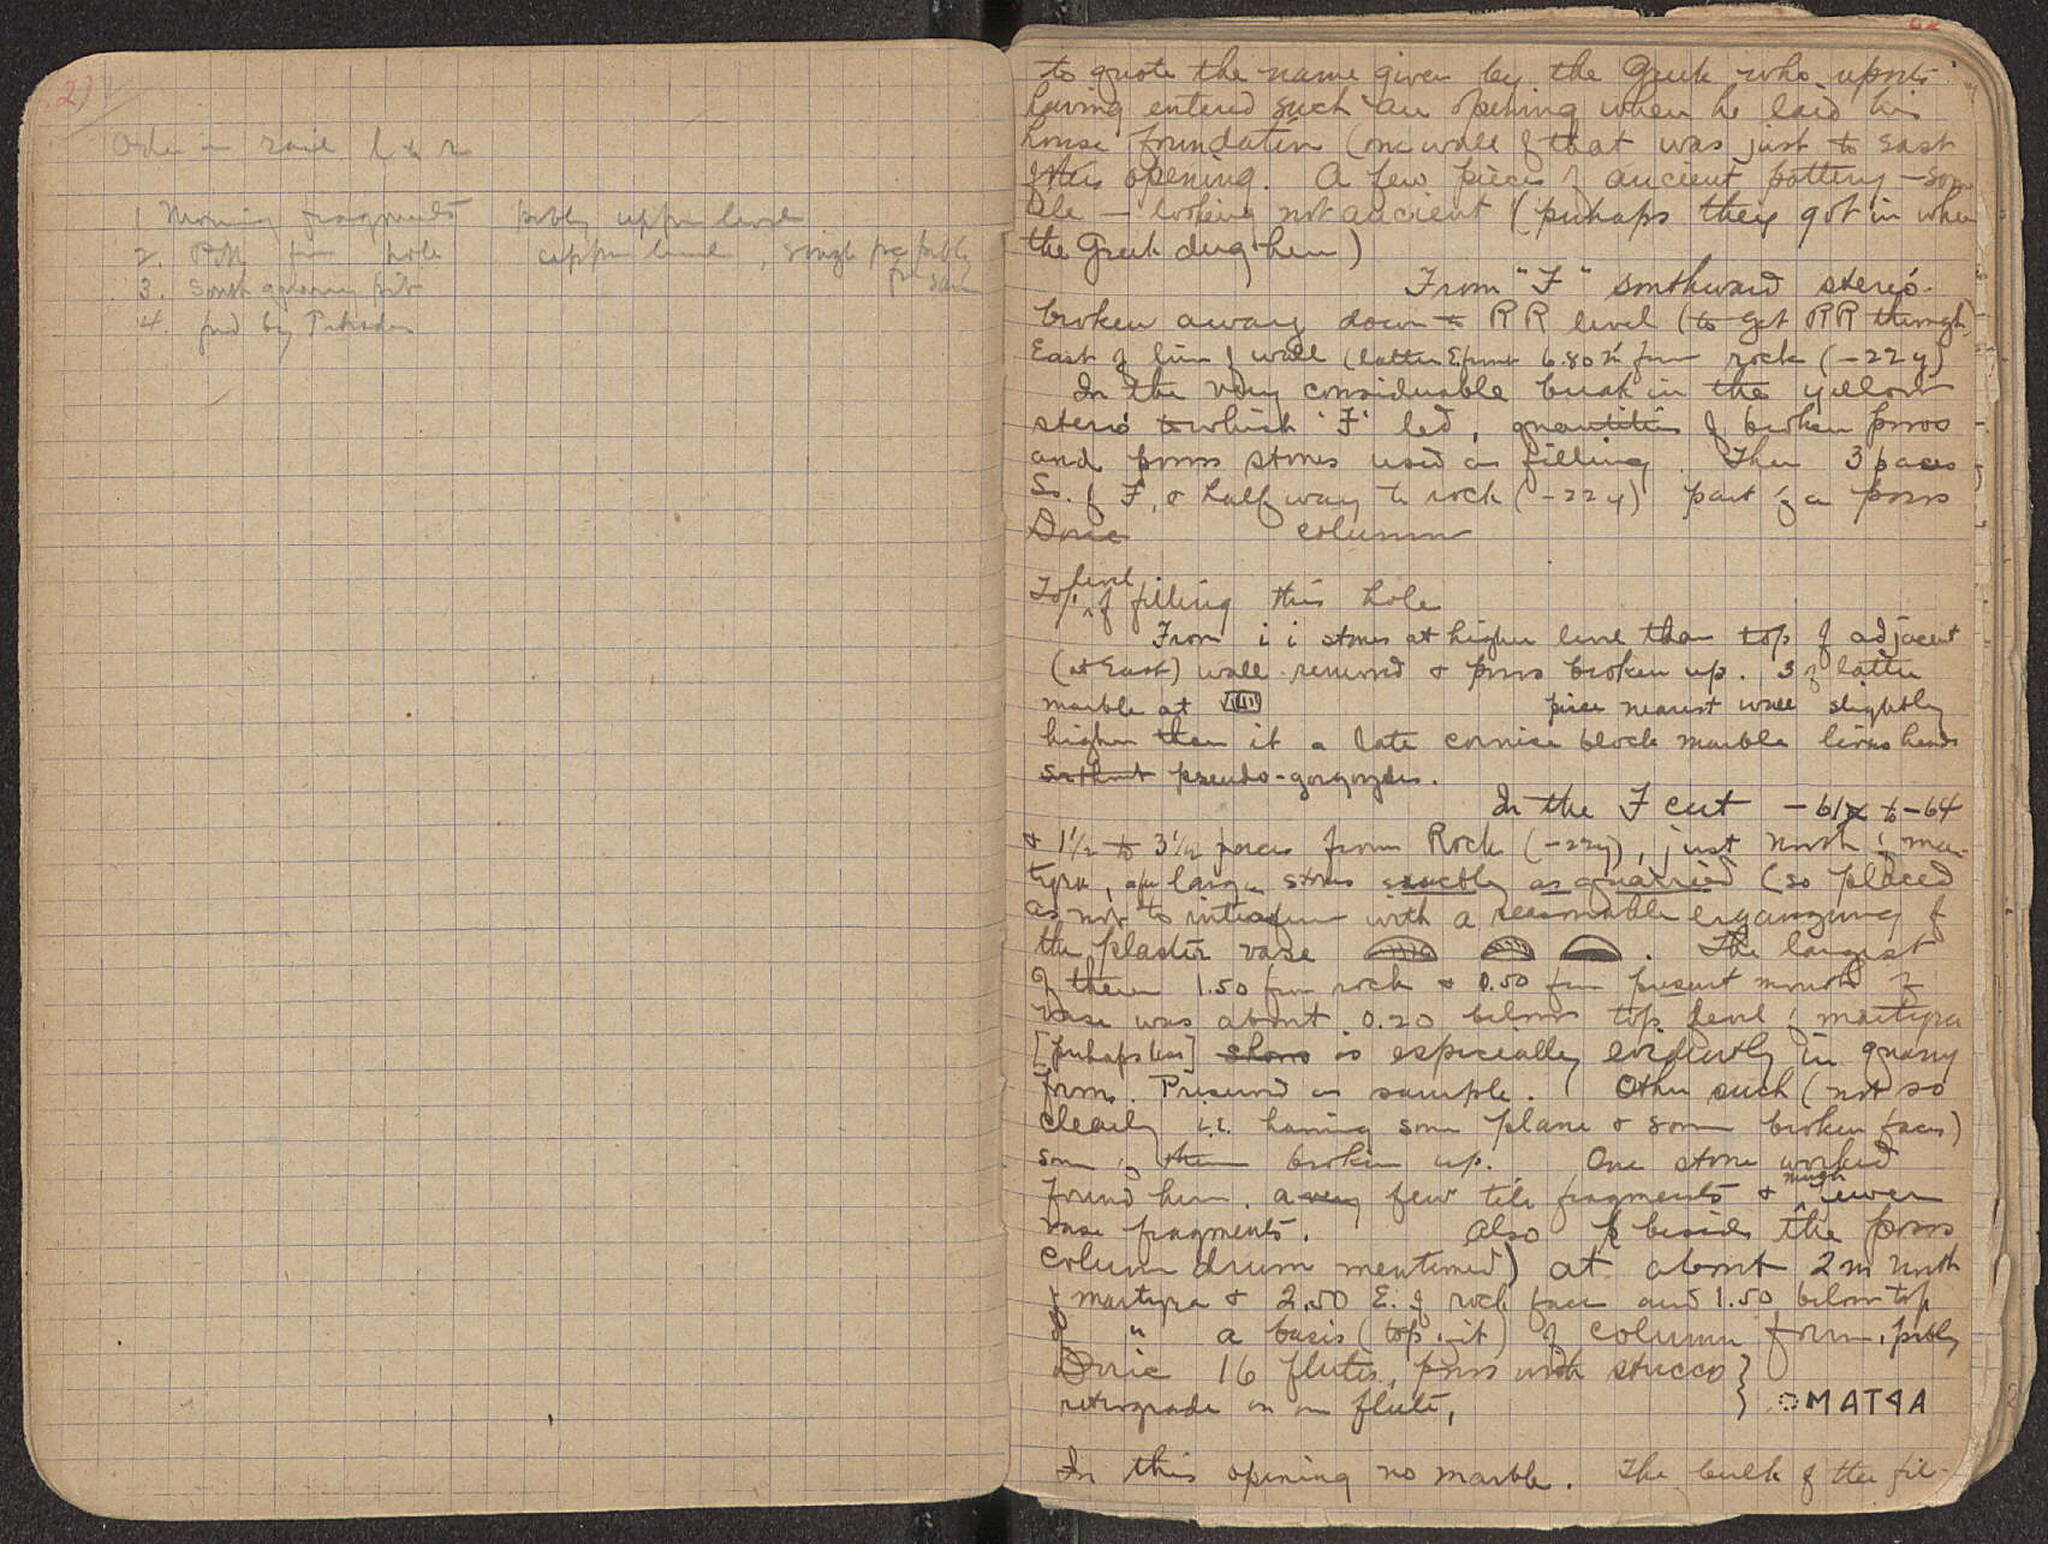 Order in
1 Morning fragments pbbly upper level
2. hole upper level, single pc pbbly
3. South quarry pit
4. by
to quote the name given by the Greek who reports
having entered such an opening when he laid his
house foundation (one wall of that was just to East
this opening. A few pieces of ancient pottery - some
tile - looking not ancient (perhaps they got in when
the Greek dug hem)
From "F" southward stereo
broken away down to RR level (to get RR through)
East of line of wall (latter 6.80 m from rock (-22y)
In the very considerable break in the yellow
stereo to which 'F' led, quantities of broken poros
and poros stones used as filling. Then 3 paces
So. of F, & half way to rock (-22y) part of a poros
Doric column
Top level of filling this hole
From i i stones at higher level than top of adjacent
(at East) wall removed & poros broken up. 3 of latter
marble at piece nearest wall slightly
higher than it a late cornice block marble lions heads
pseudo-gargoyles.
In the F cut -61 to -64
& 1 1/2 to 3 1/2 paces from Rock (-22y), just north of mar-
tyra, a few large stones exactly as quarried (so placed
as not to interfere with a reasonable ergänzung of
the plaster vase. The largest
of them 1.50 from rock & 0.50 from present mouth of
vase was about 0.20 below top level of martyra
[perhaps less] shows is especially evidently in quarry
form. Preserved as sample. Other such (not so
clearly i.e. having some plane & some broken faces)
some of them broken up. One stone worked
found here. a very few tile fragments & much fewer
vase fragments. Also beside the poros
column drum mentioned) at about 2m north
of martyra & 2.50 E. of rock face and 1.50 below top
of " a basis (top of it) of column form, pbbly
Doric 16 flutes, poros with stucco }
retrograde on one flute, } ΟMAT4A
In this opening no marble. The bulk of the fil-